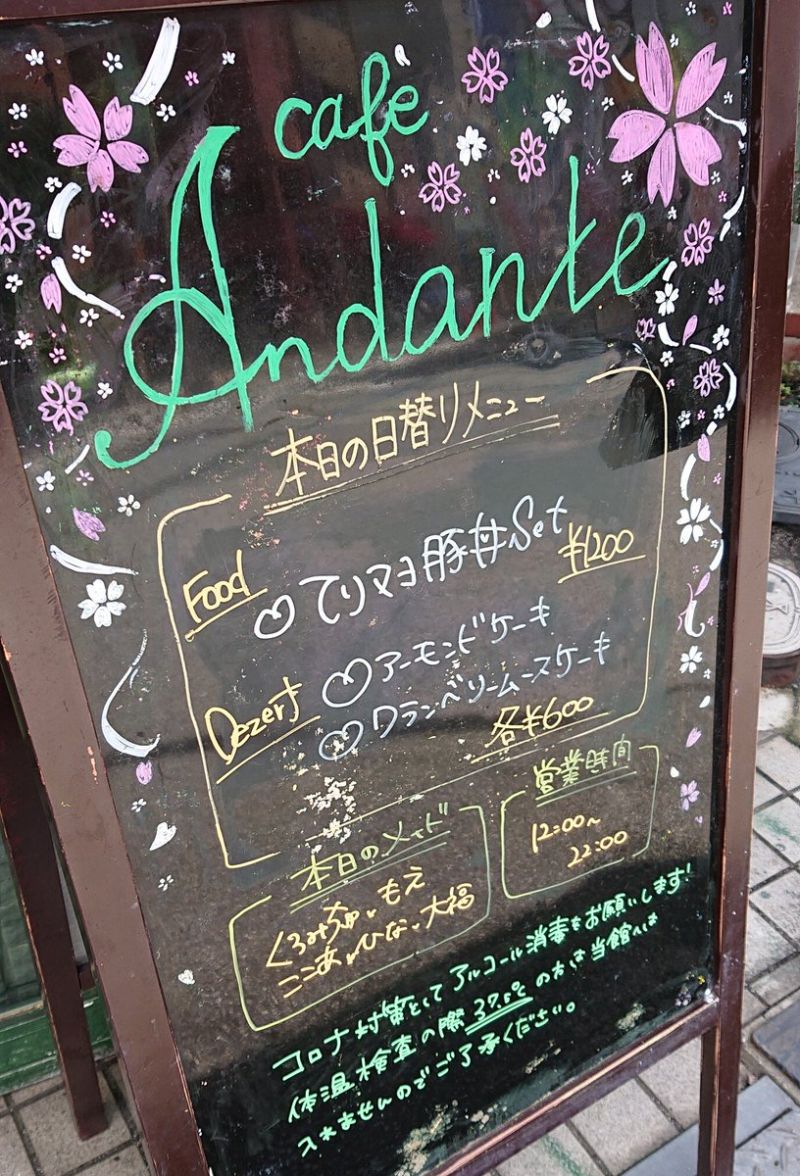 cafe
Andante
本日の日替りメニュー
Food
てりマヨ豚丼Set
¥1200
Dezert
アーモンドケーキ
フランベリームースケーキ
各¥600
本日のメイド
もえ
ここあ ひな 大福
営業時間
12:00～
22:00
コロナ対策としてアルコール消毒をお願いします!
体温検査の際37.5℃の方は当館へは
入れませんのでご了承ください。